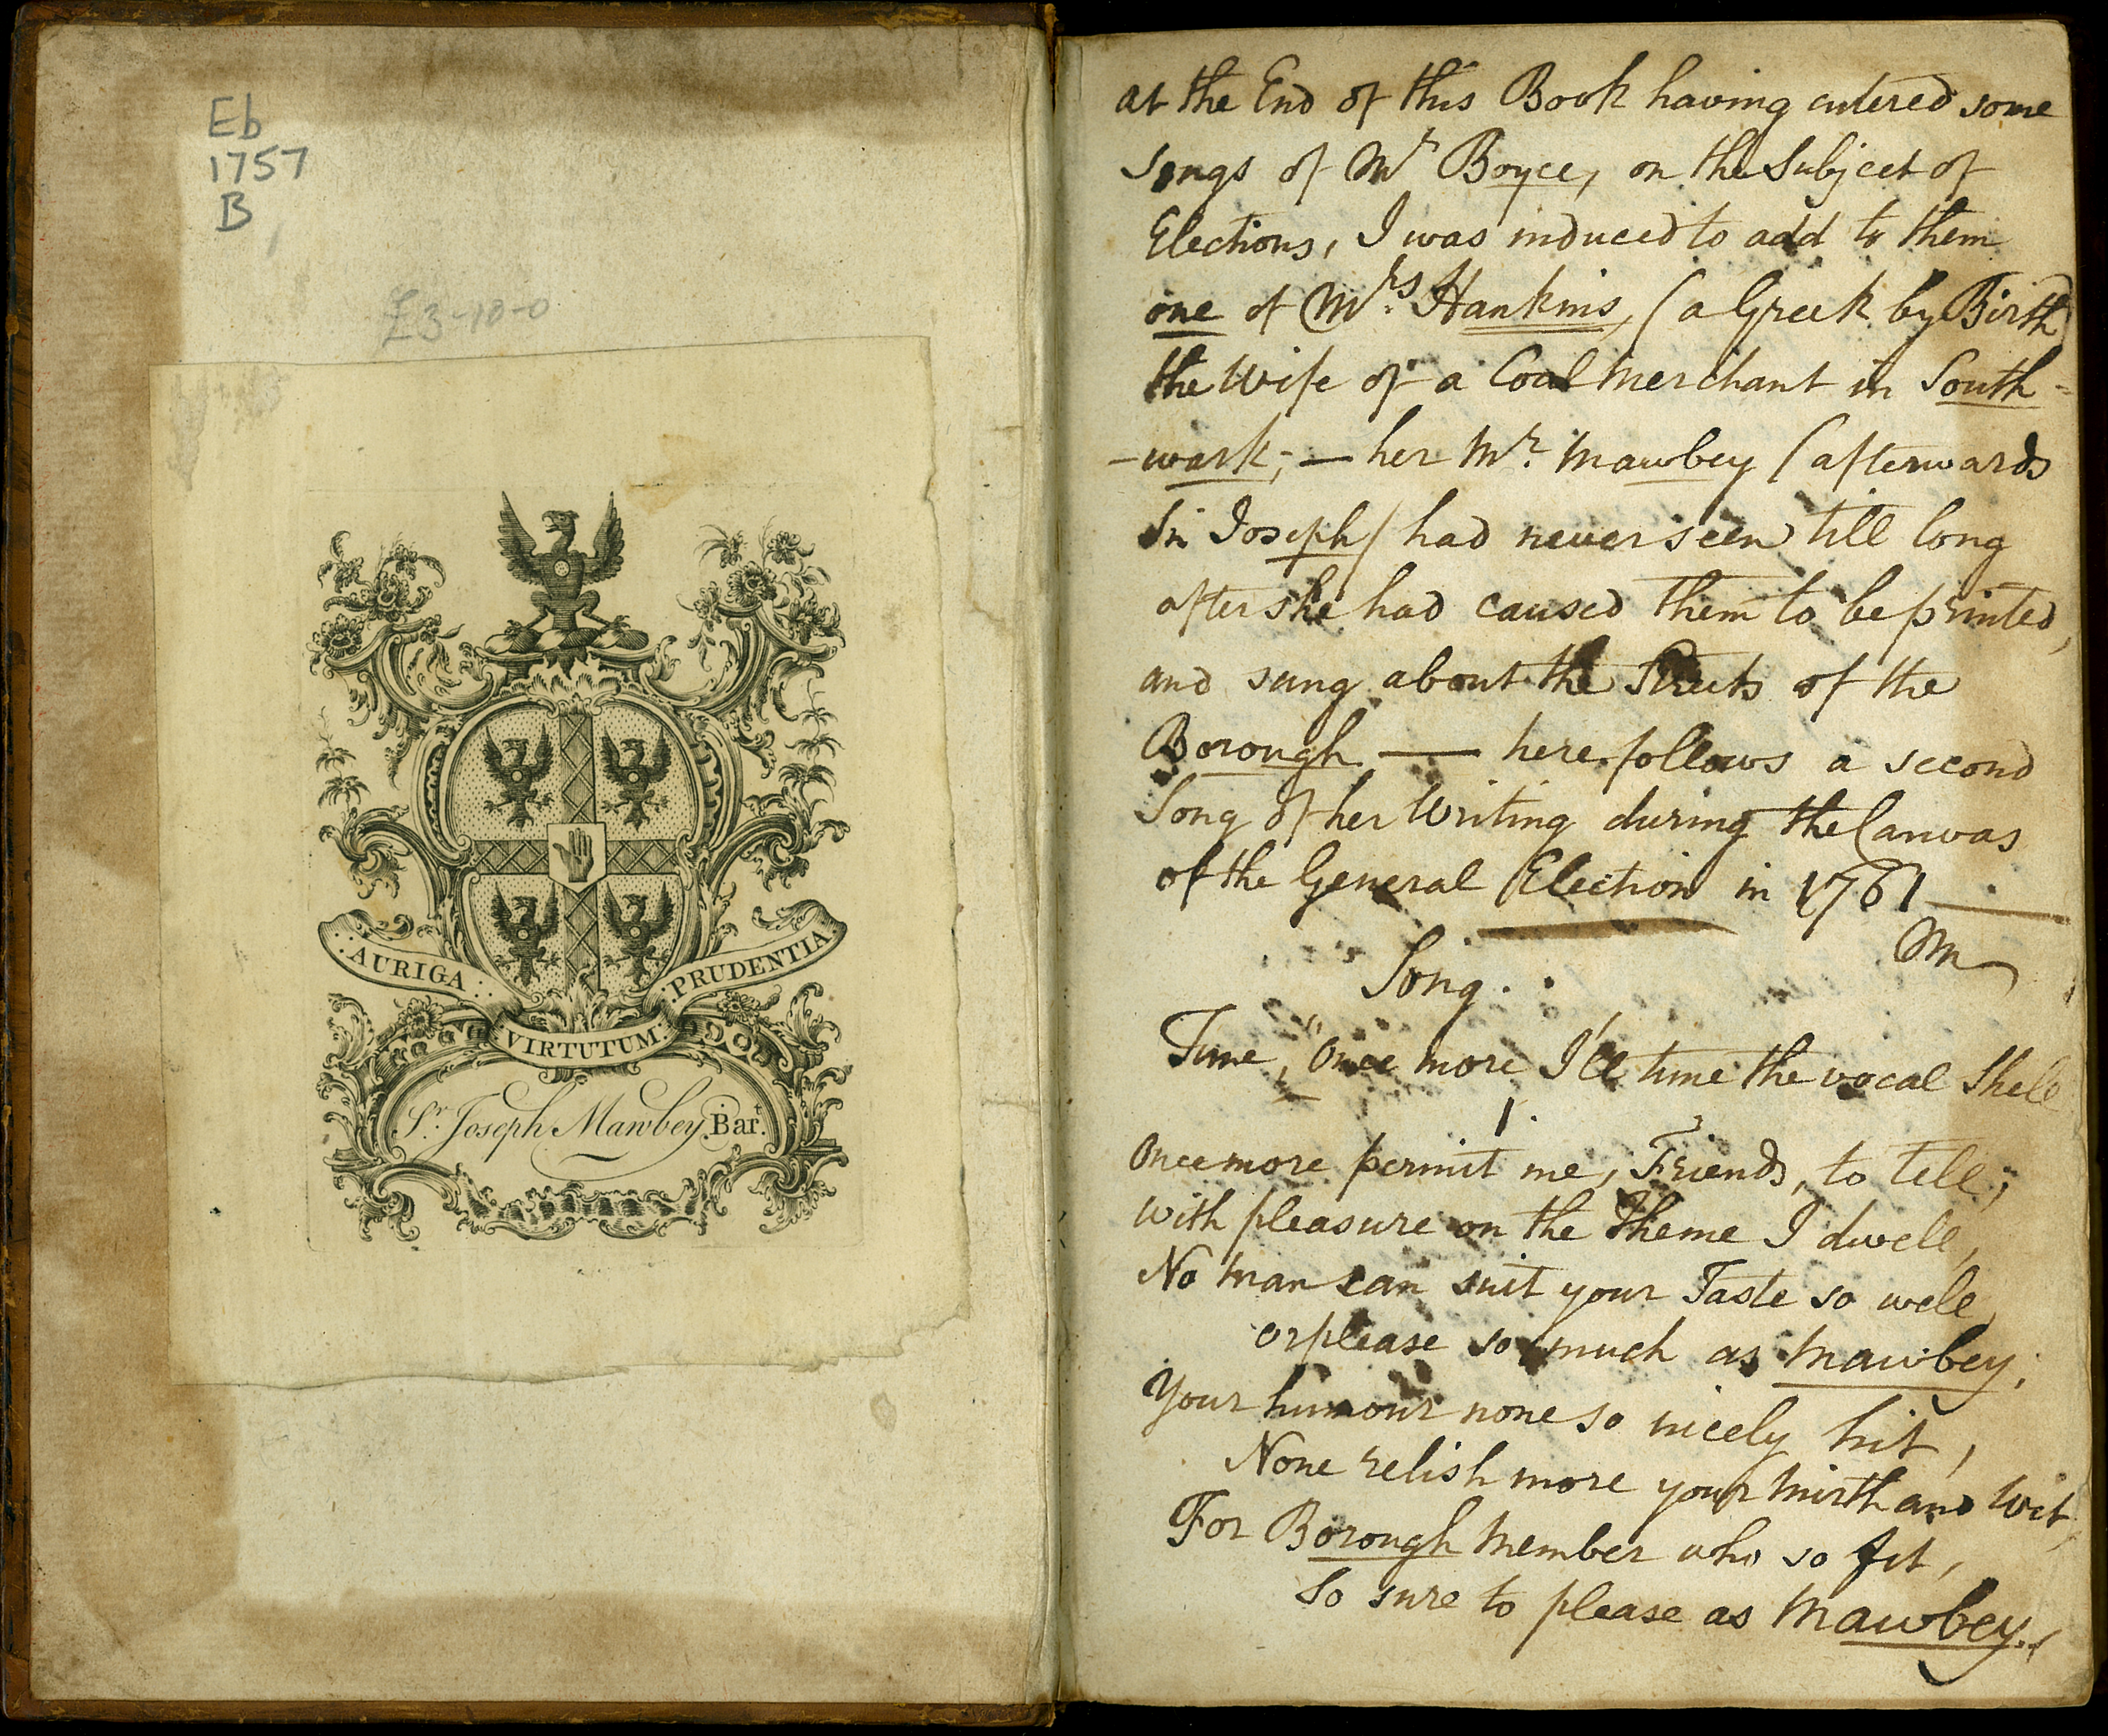 Eb
1757
B
£3-10-0
AURIGA
VIRTUTUM
PRUDENTIA
Sr. Joseph Mawbey Bart.
at the End of this Book having entered some
songs of Mr Boyce, on the Subject of
Elections, I was induced to add to them
one of Mrs. Hankins, (a Greek by Birth)
the Wife of a Coal Merchant in South-
-wark; — her Mr. Mawbey (afterwards
Sir Joseph) had never seen till long
after she had caused them to be printed,
and sung about the Streets of the
Borough — here follows a second
Song of her Writing during the Canvas
of the General Election in 1761 —
M
Song.
Tune, "Once more I'll tune the vocal Shell
1.
Once more permit me, Friends, to tell;
With pleasure on the Theme I dwell,
No Man can suit your Taste so well,
or please so much as Mawbey;
Your humour none so nicely hit,
None relish more your Mirth and Wit,
For Borough Member who so fit,
So sure to please as Mawbey.